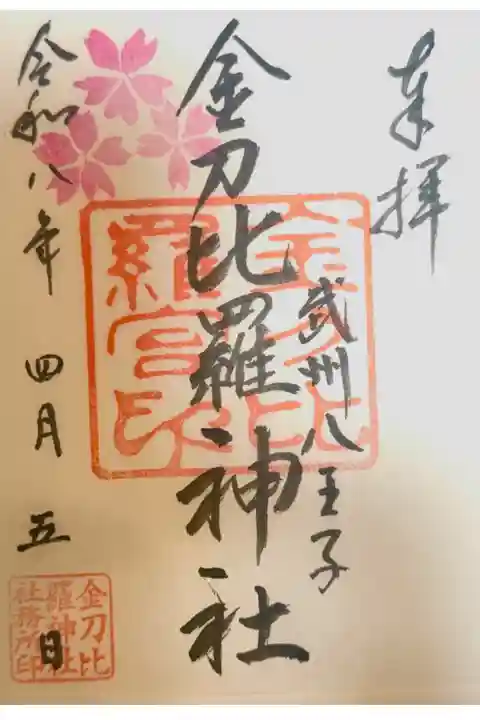 奉拝
武州八王子
金刀比羅神社
令和八年 四月 五日
金刀比羅宮印
金刀比
羅神社
社務所印